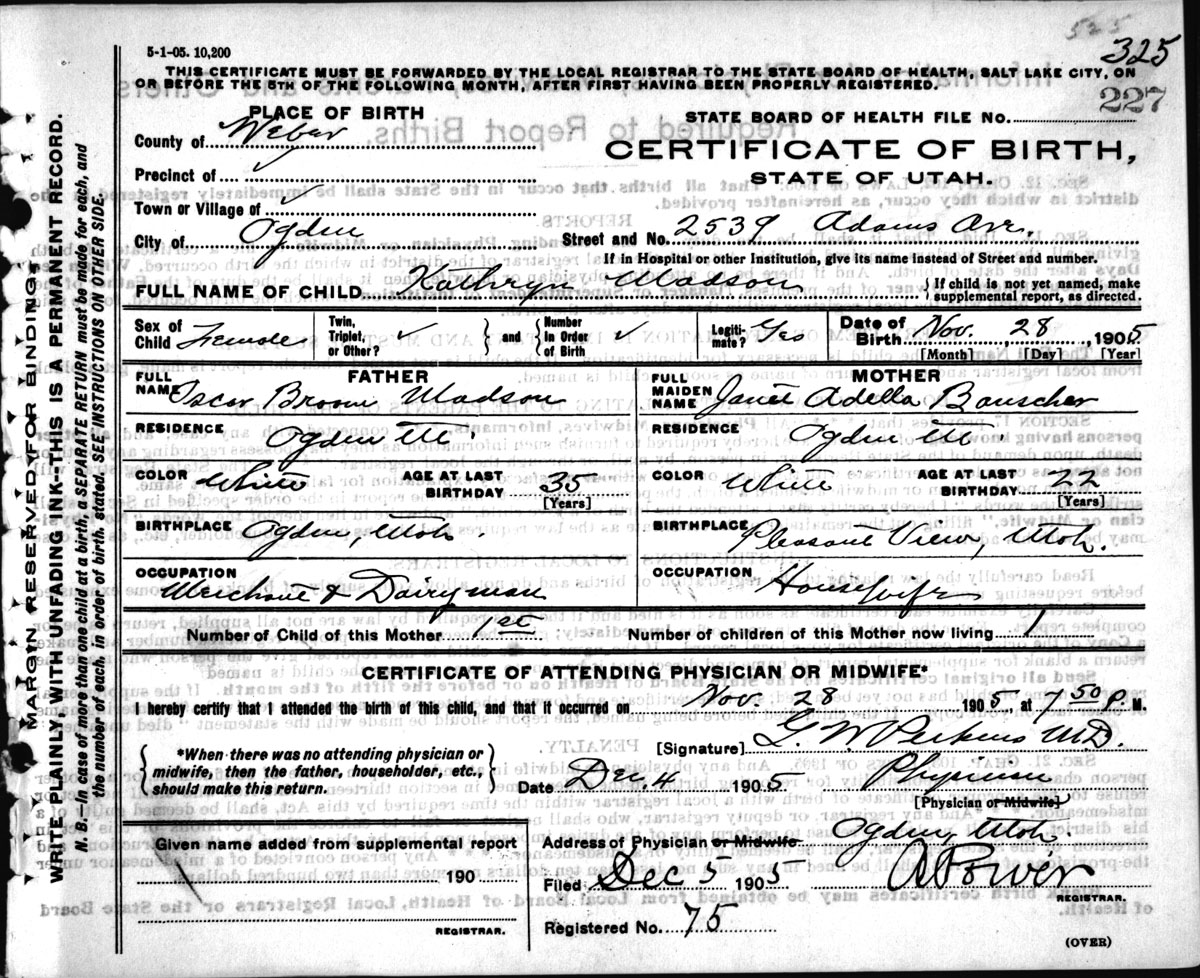 525
5-1-05. 10,200
325
THIS CERTIFICATE MUST BE FORWARDED BY THE LOCAL REGISTRAR TO THE STATE BOARD OF HEALTH, SALT LAKE CITY, ON
OR BEFORE THE 5TH OF THE FOLLOWING MONTH, AFTER FIRST HAVING BEEN PROPERLY REGISTERED.
227
PLACE OF BIRTH
STATE BOARD OF HEALTH FILE No.
County of Weber
CERTIFICATE OF BIRTH,
STATE OF UTAH.
Precinct of ✓
Town or Village of ✓
City of Ogden Street and No. 2539 Adams Ave.
If in Hospital or other Institution, give its name instead of Street and number.
FULL NAME OF CHILD Kathryn Madson { If child is not yet named, make supplemental report, as directed.
Sex of Child Female Twin, Triplet, or Other? ✓ } and { Number In Order of Birth ✓ Legitimate? Yes Date of Birth Nov. 28 1905
[Month] [Day] [Year]
FATHER MOTHER
FULL NAME Oscar Brown Madson FULL MAIDEN NAME Janet Adella Bauscher
RESIDENCE Ogden Ut. RESIDENCE Ogden Ut.
COLOR White AGE AT LAST BIRTHDAY 35 [Years] COLOR White AGE AT LAST BIRTHDAY 22 [Years]
BIRTHPLACE Ogden, Utah. BIRTHPLACE Pleasant View, Utah.
OCCUPATION Merchant & Dairyman OCCUPATION Housewife
Number of Child of this Mother 1st Number of children of this Mother now living 1
CERTIFICATE OF ATTENDING PHYSICIAN OR MIDWIFE*
I hereby certify that I attended the birth of this child, and that it occurred on Nov. 28 1905, at 7 50 P. M.
{ *When there was no attending physician or midwife, then the father, householder, etc., should make this return. }
[Signature] G. W. Perkins M.D.
Date Dec 4 1905 Physician
[Physician or Midwife]
Given name added from supplemental report
190
REGISTRAR.
Address of Physician or Midwife Ogden, Utah.
Filed Dec 5 1905 A Power
REGISTRAR.
Registered No. 75
(OVER)
MARGIN RESERVED FOR BINDING
WRITE PLAINLY, WITH UNFADING INK—THIS IS A PERMANENT RECORD.
N. B.—In case of more than one child at a birth, a SEPARATE RETURN must be made for each, and
the number of each, in order of birth, stated. SEE INSTRUCTIONS ON OTHER SIDE.